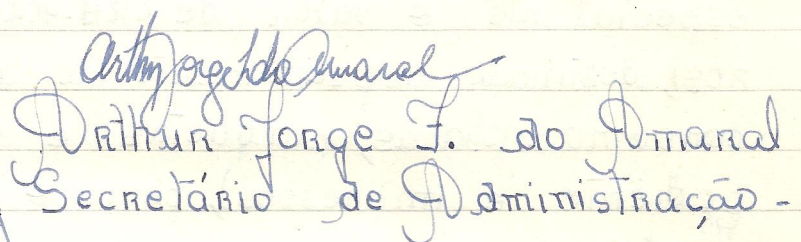 Arthur Jorge F. do Amaral
Arthur Jorge F. do Amaral
Secretário de Administração -